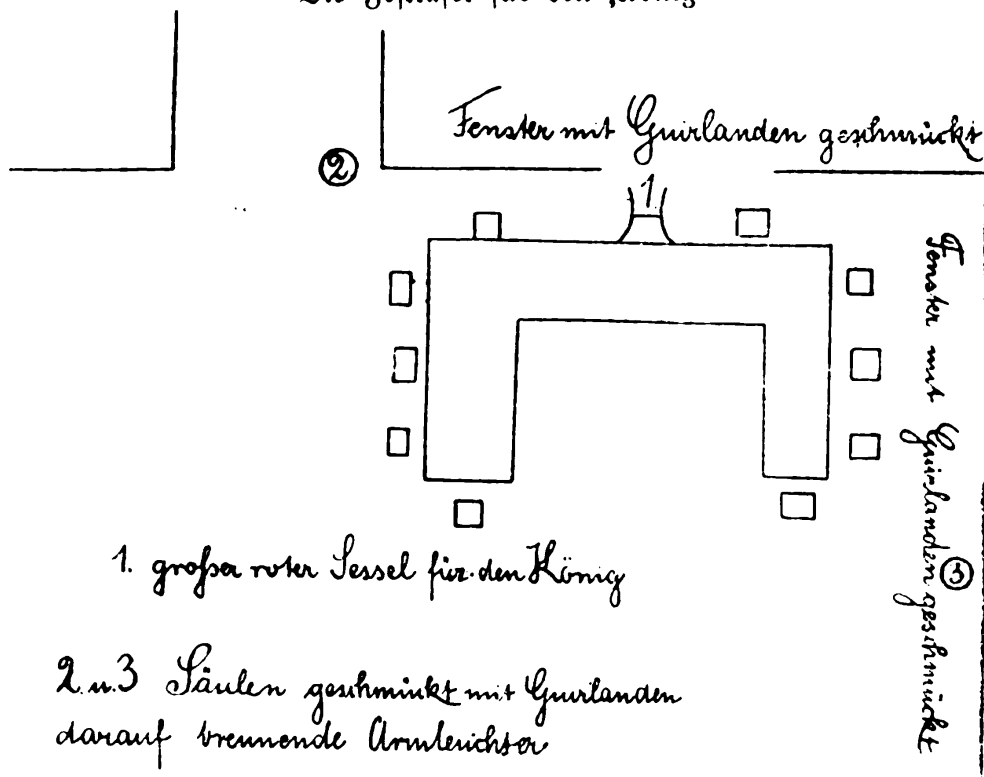 für den König
Fenster mit Guirlanden geschmückt
2
1
Fenster mit Guirlanden geschmückt
3
1. großer roter Sessel für den König
2 u. 3 Säulen geschmückt mit Guirlanden
darauf brennende Armleuchter